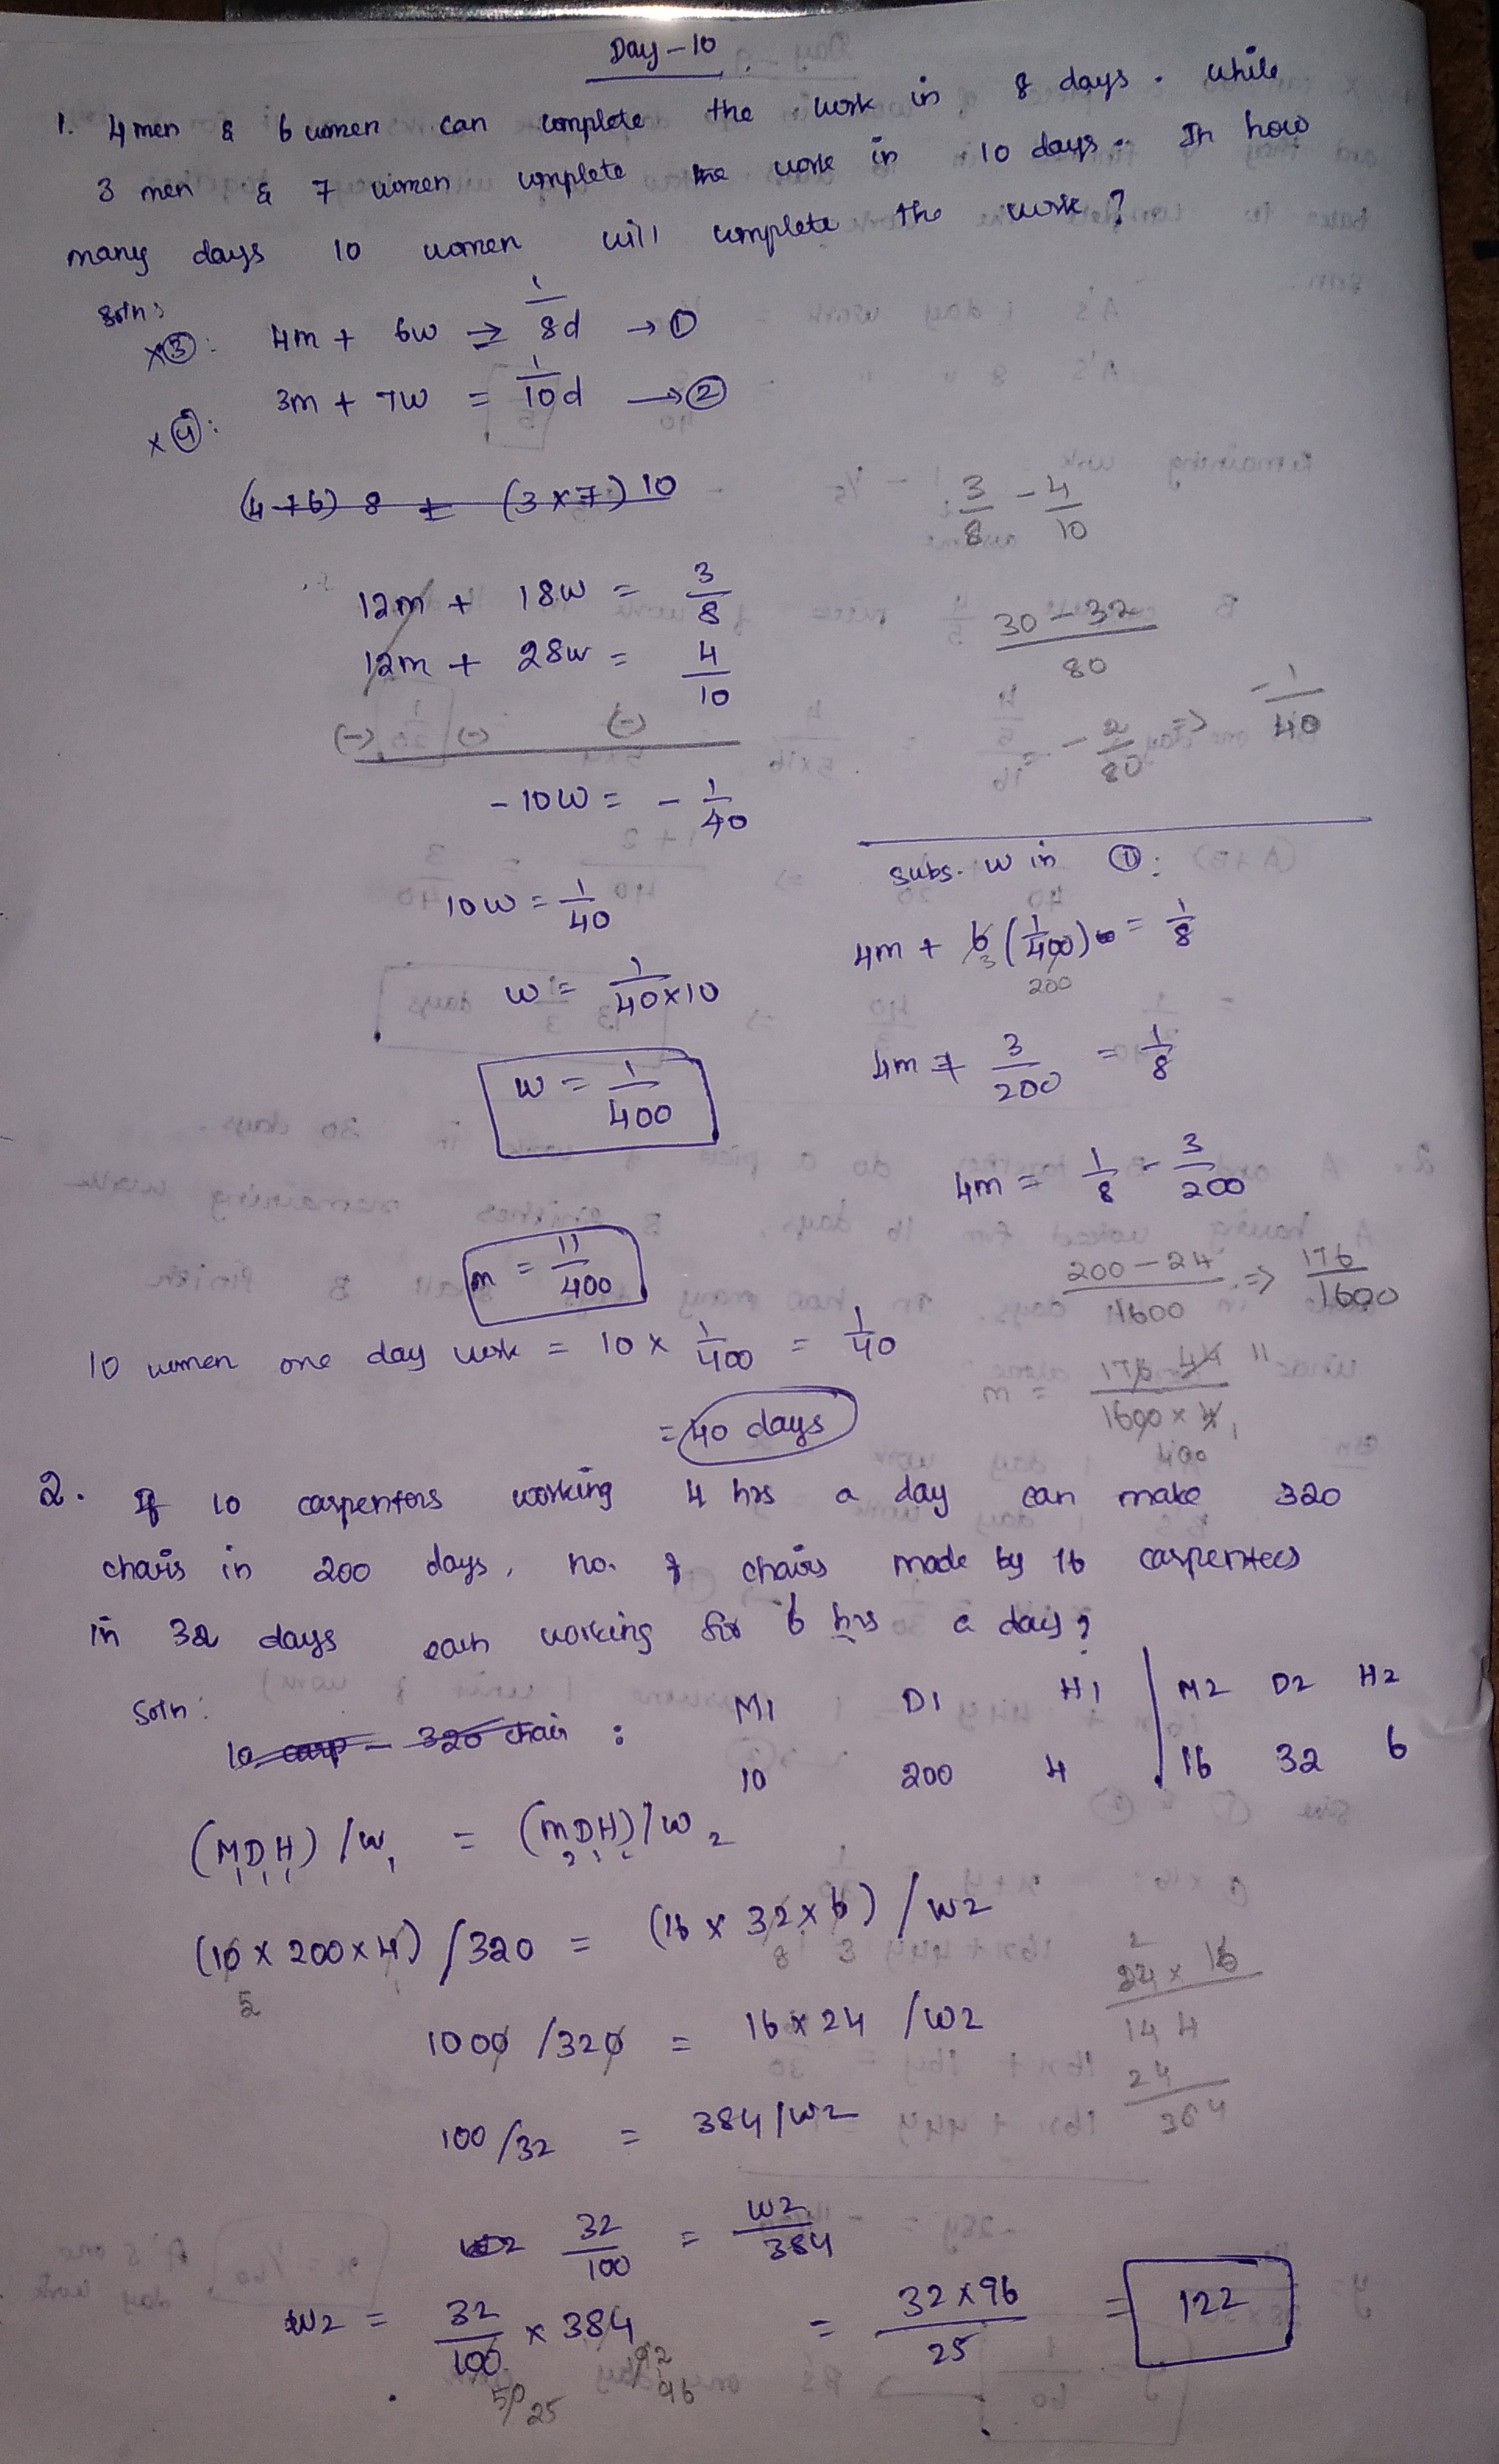 Day - 10
1. 4 men & 6 women can complete the work in 8 days. while
3 men & 7 women complete the work in 10 days. In how
many days 10 women will complete the work?
Soln:
×③: 4m + 6w ⇒ 1/8d → ①
×④: 3m + 7w = 1/10d → ②
(4+6) 8 ± (3×7) 10
3/8 - 4/10
12m + 18w = 3/8
30 - 32 / 80
12m + 28w = 4/10
(-) (-) (-)
= -2/80 ⇒ -1/40
-10w = -1/40
10w = 1/40
w = 1/40×10
w = 1/400
subs. w in ①:
4m + 6(1/400) = 1/8
3 200
4m + 3/200 = 1/8
4m = 1/8 - 3/200
200 - 24 / 1600 ⇒ 176/1600
m = 176 44 11 / 1600 × 4 1
400
m = 11/400
10 women one day work = 10 × 1/400 = 1/40
= 40 days
2. If 10 carpenters working 4 hrs a day can make 320
chairs in 200 days, no. of chairs made by 16 carpenters
in 32 days each working for 6 hrs a day?
Soln:
10 carp - 320 chair :
M1 D1 H1 | M2 D2 H2
10 200 4 | 16 32 6
(M1D1H1) /W1 = (MDH)/W2
(10 × 200 × 4) / 320 = (16 × 32 × 6) / W2
5 8 3
1000 / 320 = 16 × 24 / W2
2
24 × 16
144
24
364
100 / 32 = 384 / W2
32/100 = W2/384
W2 = 32/100 × 384 = 32 × 96 / 25 = 122
50 25 192 96